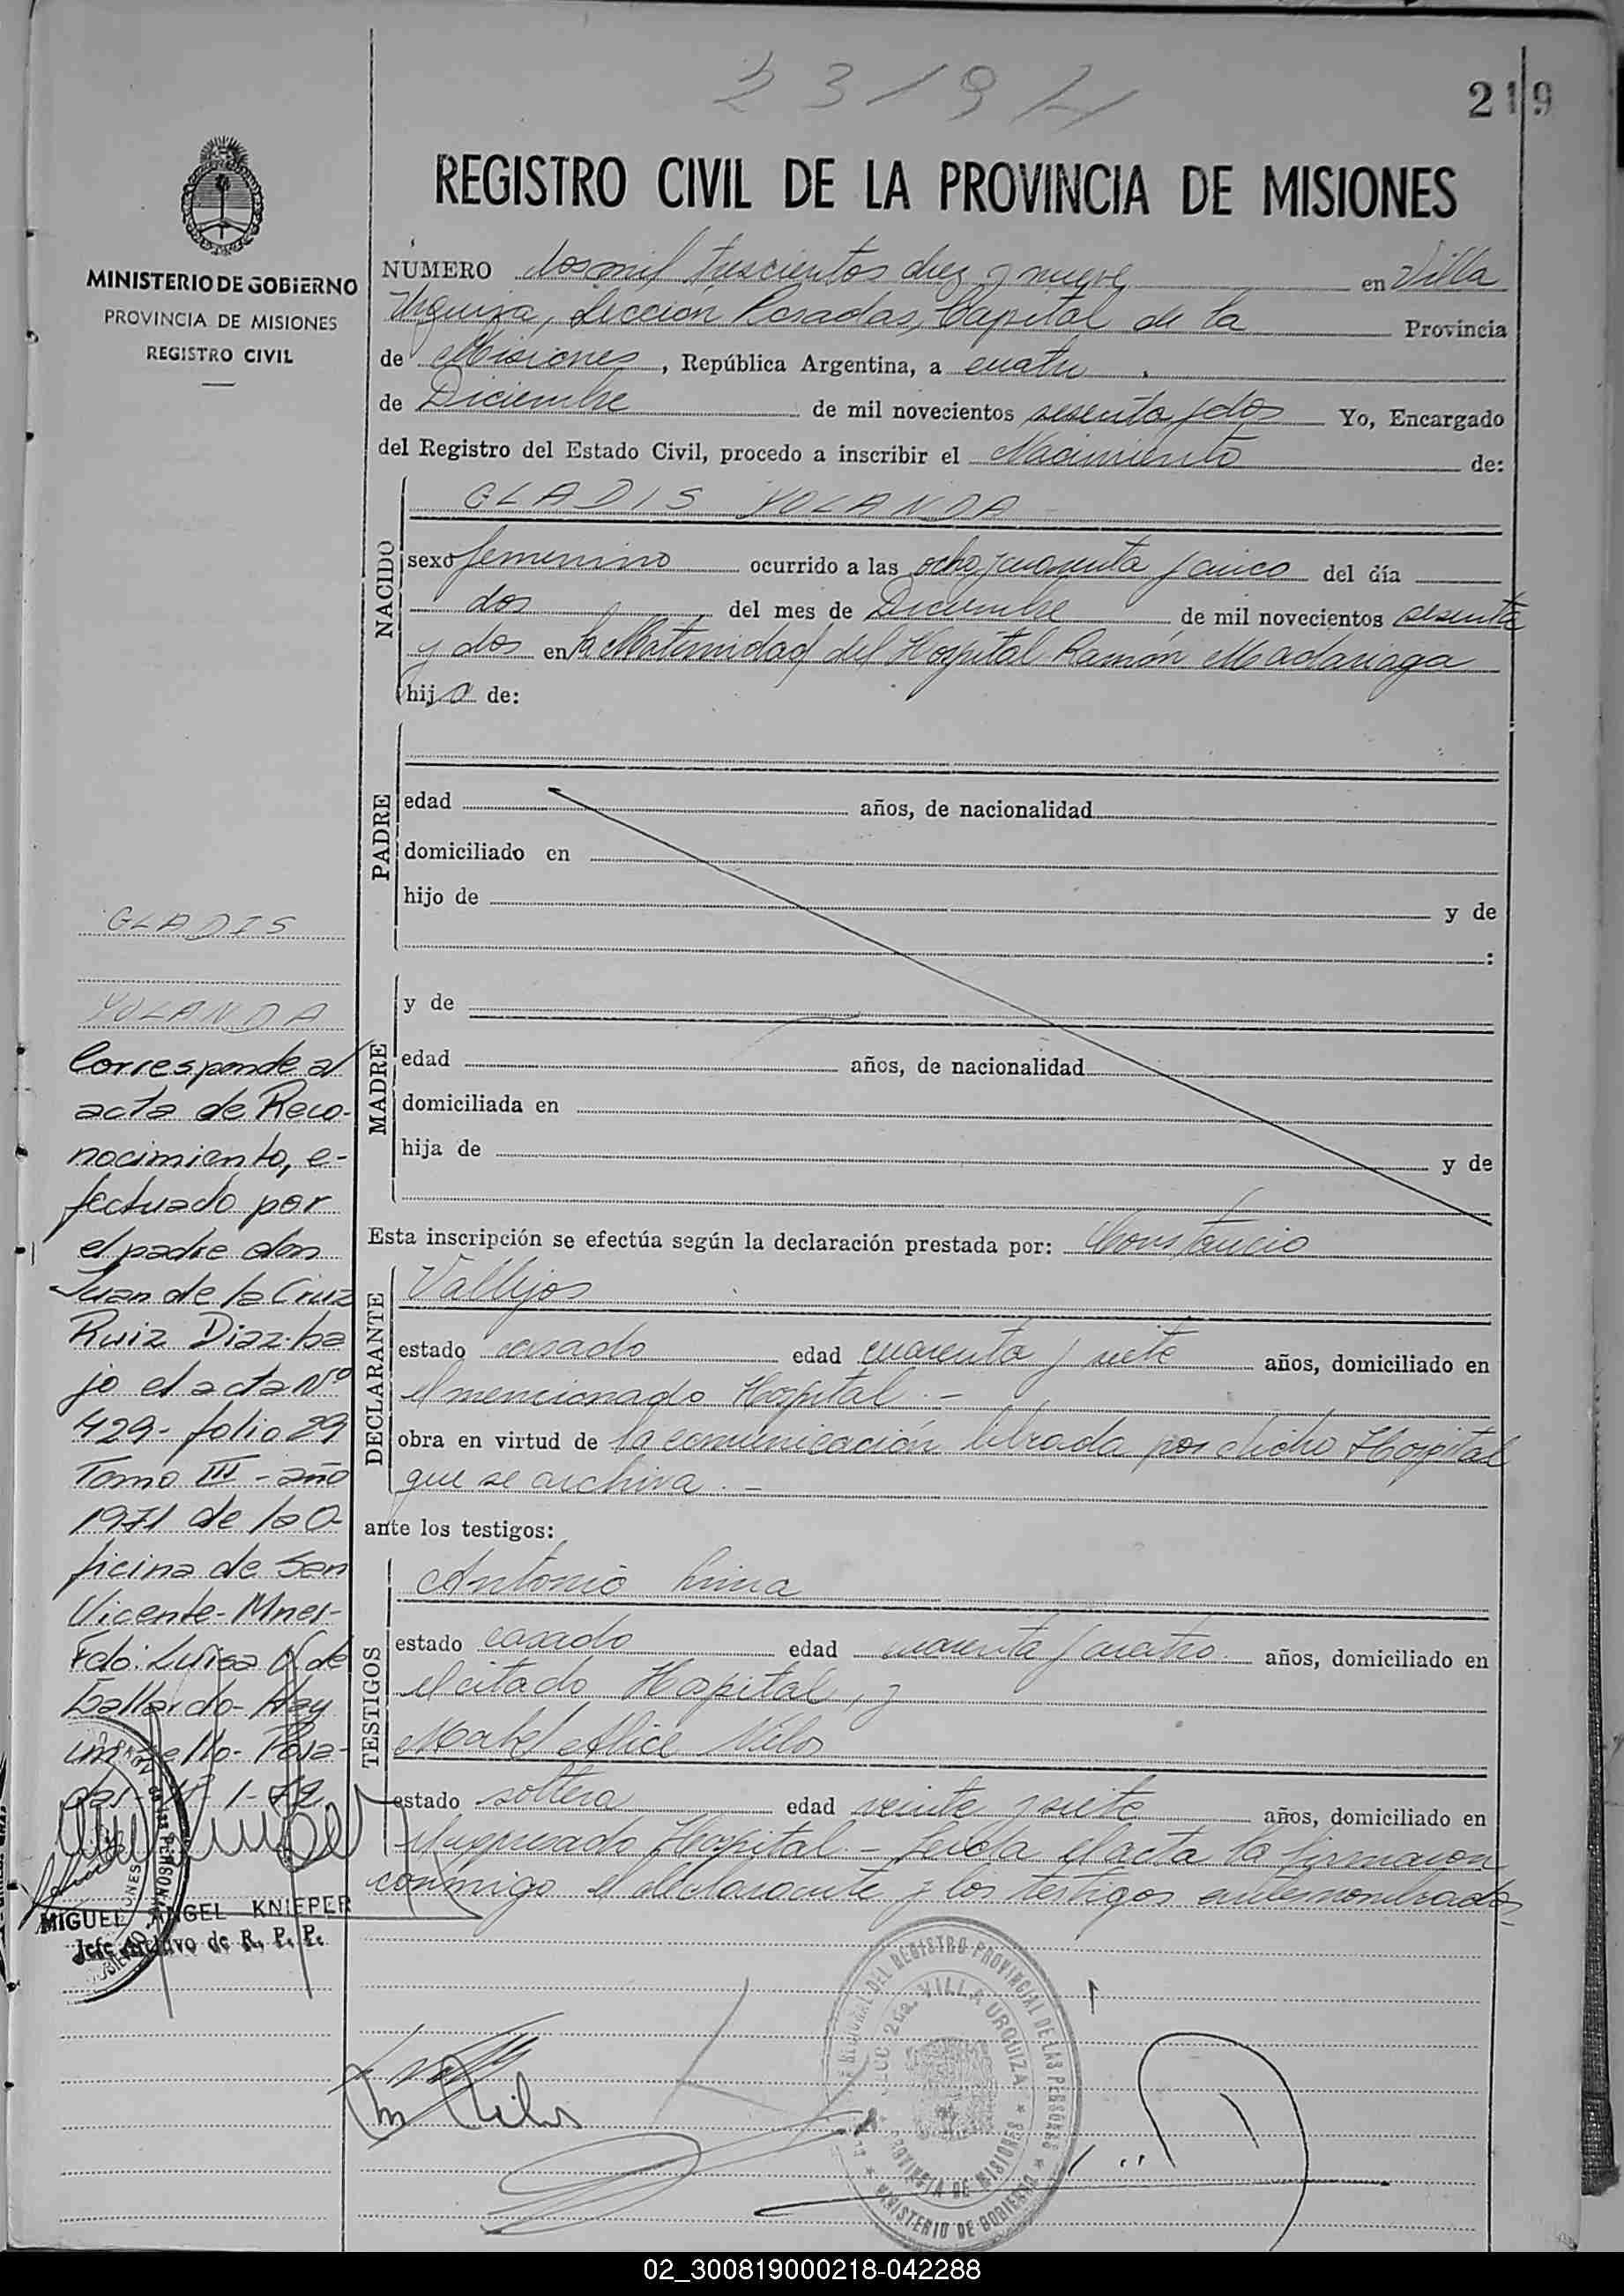 219
REGISTRO CIVIL DE LA PROVINCIA DE MISIONES
MINISTERIO DE GOBIERNO
PROVINCIA DE MISIONES
REGISTRO CIVIL
NÚMERO dosmil trescientos diez y nueve en Villa
Urquiza, Sección Posadas, Capital de la Provincia
de Misiones, República Argentina, a cuatro
de Diciembre de mil novecientos sesenta y dos Yo, Encargado
del Registro del Estado Civil, procedo a inscribir el Nacimiento de:
NACIDO
GLADIS YOLANDA
sexo femenino ocurrido a las ocho y cuarenta y cinco del día
dos del mes de Diciembre de mil novecientos sesenta
y dos en la Maternidad del Hospital Ramón Madariaga
hija de:
PADRE
edad años, de nacionalidad
domiciliado en
hijo de y de
:
MADRE
y de
edad años, de nacionalidad
domiciliada en
hija de y de
Esta inscripción se efectúa según la declaración prestada por: Constancio
DECLARANTE
Vallejos
estado casado edad cuarenta y siete años, domiciliado en
el mencionado Hospital.-
obra en virtud de la comunicación librada por dicho Hospital
que se archiva.-
ante los testigos:
TESTIGOS
Antonio
estado casado edad cuarenta y cuatro años, domiciliado en
el citado Hospital, y
Mabel Alice
estado soltera edad veinte y siete años, domiciliado en
el expresado Hospital.- Leída el acta la firmaron
conmigo el declarante y los testigos antenombrados
GLADIS
YOLANDA
Corresponde al
acta de Reco-
nocimiento, e-
fectuado por
el padre don
Juan de la Cruz
Ruiz Diaz-ba
jo el acta Nº
429- folio 29
Tomo III - año
1971 de la O-
ficina de San
Vicente- Mnes-
Fdo: Luisa de
Gallardo- Hay
un sello- Posa-
das- 1-72
MIGUEL ANGEL KNIEPER
Jefe Archivo de R. P. P.
VILLA URQUIZA
PROVINCIA DE MISIONES
MINISTERIO DE GOBIERNO
DEL REGISTRO PROVINCIAL DE LAS PERSONAS
02_300819000218-042288